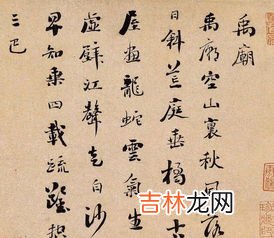 禹廟
禹廟空山裏秋風落
日斜荒庭垂橘
屋畫龍蛇雲氣生
虛壁江聲走白沙
早知乘四載疏鑿控
三巴
吉林龙网